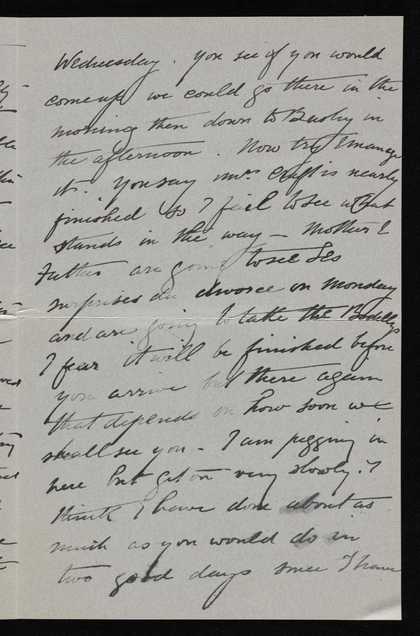 Wednesday. You see if you would
come up we could go there in the
morning then down to Bushy in
the afternoon. Now try & manage
it. You say Mrs Craft is nearly
finished so I fail to see what
stands in the way – Mother &
Father are going to see Les
surprises du divorce on Monday
and are going to take the Bodellys
I fear it will be finished before
you arrive but there again
that depends on how soon we
shall see you – I am pegging in
here but get on very slowly. I
think I have done about as
much as you would do in
two good days since I have